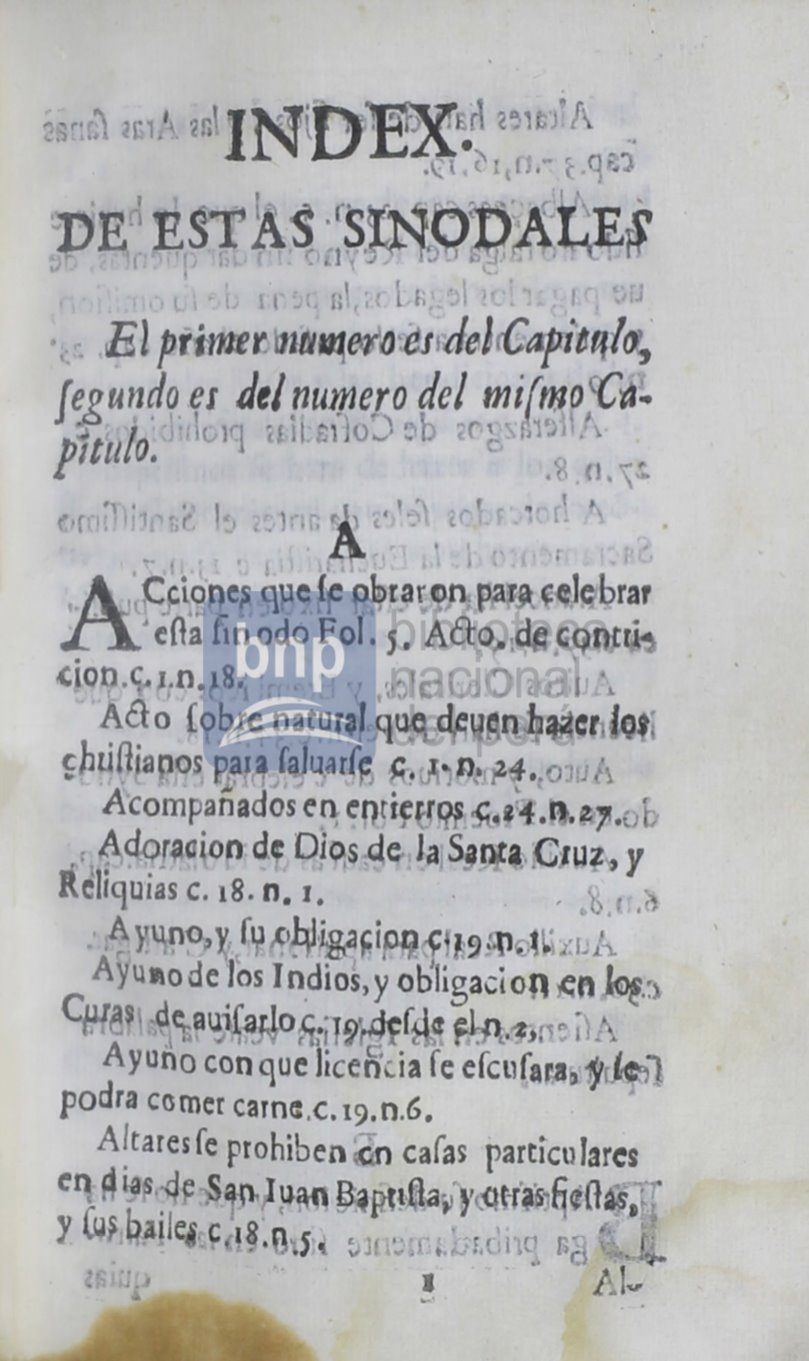 INDEX.
DE ESTAS SINODALES
El primer numero es del Capitulo,
ſegundo es del numero del miſmo Ca-
pitulo.
A
ACciones que ſe obraron para celebrar
eſta ſinodo Fol. 5. Acto. de contri-
cion.c.1.n.18.
Acto ſobre natural que deuen hazer los
chriſtianos para ſaluarſe c. 1. n. 24.
Acompañados en entierros c.24.n.27.
Adoracion de Dios de la Santa Cruz, y
Reliquias c. 18. n. 1.
Ayuno, y ſu obligacion c.19.n.1.
Ayuno de los Indios, y obligacion en los
Curas de auiſarlo c. 19. deſde el n. 2,
Ayuno con que licencia ſe eſcuſara, y ſe
podra comer carne.c.19.n.6.
Altares ſe prohiben en caſas particulares
en dias de San Iuan Baptiſta, y otras fieſtas,
y ſus bailes c.18.n.5.
1 Al-
bnp biblioteca
nacional
del perú